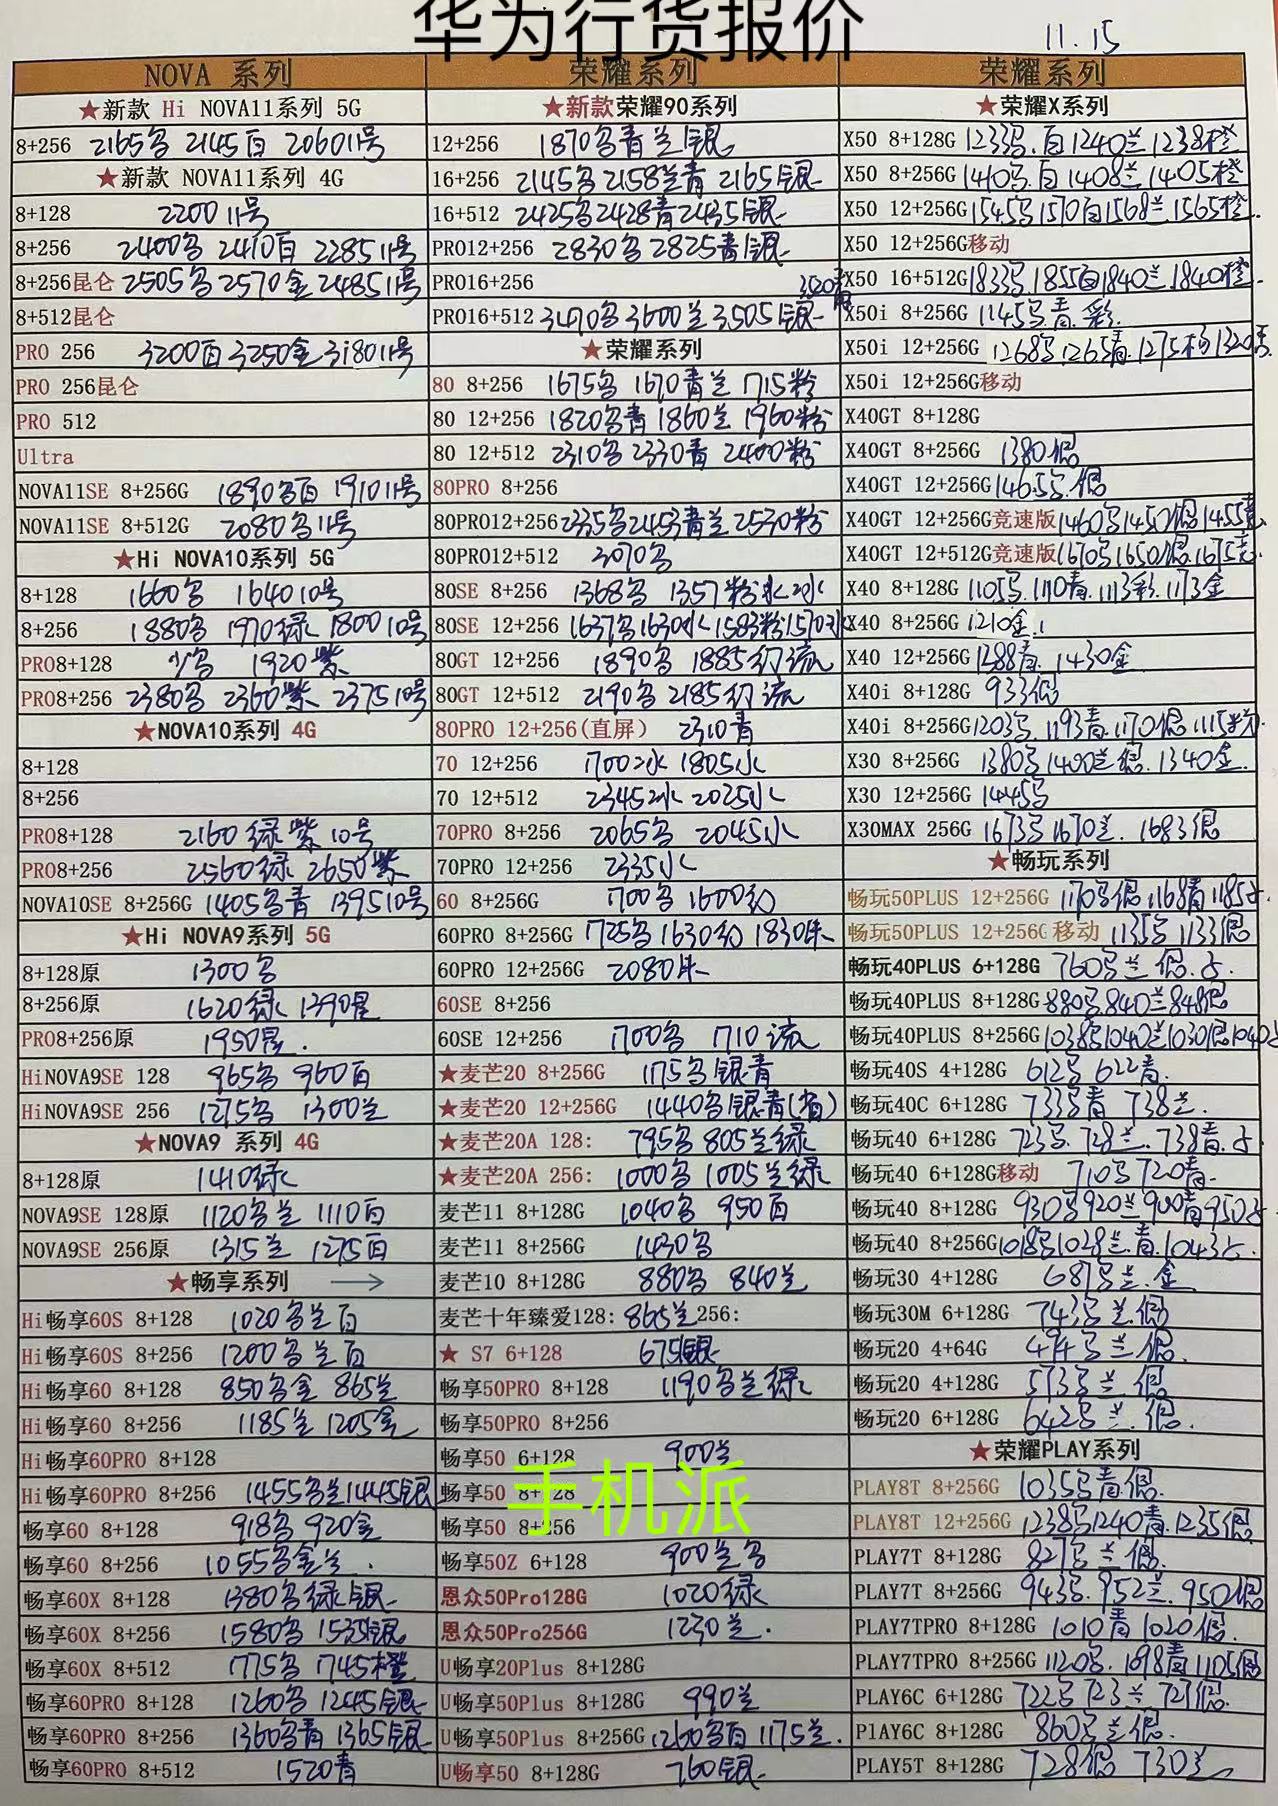 华为行货报价
11.15
NOVA 系列
★新款 Hi NOVA11系列 5G
8+256 2165多 2145白 2060 11号
★新款 NOVA11系列 4G
8+128 2200 11号
8+256 2400多 2410白 2285 11号
8+256昆仑 2505多 2570金 2485 11号
8+512昆仑
PRO 256 3200白 3250金 3180 11号
PRO 256昆仑
PRO 512
Ultra
NOVA11SE 8+256G 1890多白 1910 11号
NOVA11SE 8+512G 2080多 11号
★Hi NOVA10系列 5G
8+128 1660多 1640 10号
8+256 1880多 1970绿 1800 10号
PRO8+128 少多 1920紫
PRO8+256 2380多 2360紫 2375 10号
★NOVA10系列 4G
8+128
8+256
PRO8+128 2160 绿紫 10号
PRO8+256 2560绿 2650紫
NOVA10SE 8+256G 1405多青 1395 10号
★Hi NOVA9系列 5G
8+128原 1300多
8+256原 1620绿 1390星
PRO8+256原 1950星.
HiNOVA9SE 128 965多 960白
HiNOVA9SE 256 1275多 1300兰
★NOVA9 系列 4G
8+128原 1410绿
NOVA9SE 128原 1120多兰 1110白
NOVA9SE 256原 1315兰 1275白
★畅享系列 →
Hi畅享60S 8+128 1020多兰白
Hi畅享60S 8+256 1200多兰白
Hi畅享60 8+128 850多金 865兰
Hi畅享60 8+256 1185兰 1205金
Hi畅享60PRO 8+128
Hi畅享60PRO 8+256 1455多兰1445银
畅享60 8+128 918多 920金
畅享60 8+256 1055多金兰.
畅享60X 8+128 1380多绿银
畅享60X 8+256 1580多 1535银
畅享60X 8+512 1775多 1745橙
畅享60PRO 8+128 1260多 1245银
畅享60PRO 8+256 1360多青 1365银
畅享60PRO 8+512 1520青
荣耀系列
★新款荣耀90系列
12+256 1870多青兰银
16+256 2145多 2158兰青 2165银
16+512 2425多2428青2435银
PRO12+256 2830多 2825青银
PRO16+256
PRO16+512 3490多 3600兰 3505银 3520青
★荣耀系列
80 8+256 1675多 1670青兰 1715粉
80 12+256 1820多青 1860兰 1960粉
80 12+512 2310多 2330青 2400粉
80PRO 8+256
80PRO12+256 2335多2453青兰2530粉
80PRO12+512
80SE 8+256 1368多 1357粉水冰
80SE 12+256 1637多1630水1583粉1570冰
80GT 12+256 1890多 1885幻流
80GT 12+512 2190多 2185幻流
80PRO 12+256(直屏) 2310青
70 12+256 1700冰 1805水
70 12+512 2345冰 2025水
70PRO 8+256 2065多 2045水
70PRO 12+256 2335水
60 8+256G 1700多 1600幻
60PRO 8+256G 1725多1630幻 1830朱
60PRO 12+256G 2080朱
60SE 8+256
60SE 12+256 1700多 1710流
★麦芒20 8+256G 1175多银青
★麦芒20 12+256G 1440多银青(省)
★麦芒20A 128: 795多 805兰绿
★麦芒20A 256: 1000多 1005兰绿
麦芒11 8+128G 1040多 950白
麦芒11 8+256G 1430多
麦芒10 8+128G 880多 840兰
麦芒十年臻爱128: 865兰256:
★ S7 6+128 675银
畅享50PRO 8+128 1190多兰绿
畅享50PRO 8+256
畅享50 6+128 900兰
畅享50 8+128
手机派
畅享50 8+256
畅享50Z 6+128 900兰多
恩众50Pro128G 1020绿
恩众50Pro256G 1230兰.
U畅享20Plus 8+128G
U畅享50Plus 8+128G 990兰
U畅享50Plus 8+256G 1260多白 1175兰.
U畅享50 8+128G 760银
荣耀系列
★荣耀X系列
X50 8+128G 1233多.白1240兰1238橙
X50 8+256G 1410多.白1408兰1405橙
X50 12+256G 1545多1570白1568兰1565橙
X50 12+256G移动
X50 16+512G 1833多1855白1840兰1840橙
X50i 8+256G 1145多.青.彩.
X50i 12+256G 1268多1265青.1275粉1320
X50i 12+256G移动
X40GT 8+128G
X40GT 8+256G 1380银
X40GT 12+256G 1465多.银
X40GT 12+256G竞速版 1460多1450银1455竞
X40GT 12+512G竞速版 1670多1650银1675竞
X40 8+128G 1105多.1110青.1113彩.1173金
X40 8+256G 1210金
X40 12+256G 1288青.1430金
X40i 8+128G 933银
X40i 8+256G 1203多.1193青.1170银.1115粉.
X30 8+256G 1380多1400兰银.1340金.
X30 12+256G 1445多
X30MAX 256G 1673多1670兰.1683银
★畅玩系列
畅玩50PLUS 12+256G 1170多银.1168青1185
畅玩50PLUS 12+256G 移动 1135多 1133银
畅玩40PLUS 6+128G 760多兰.银.
畅玩40PLUS 8+128G 880多840兰848银
畅玩40PLUS 8+256G 1038多1040兰1030银1040
畅玩40S 4+128G 612多 622青.
畅玩40C 6+128G 733多青 738兰.
畅玩40 6+128G 723多.728兰.738青.
畅玩40 6+128G移动 710多720青.
畅玩40 8+128G 930多920兰900青950
畅玩40 8+256G 1018多1028兰.青.1043
畅玩30 4+128G 687多兰.金
畅玩30M 6+128G 743多兰.银
畅玩20 4+64G 494多兰银.
畅玩20 4+128G 573多兰.银
畅玩20 6+128G 642多兰.银.
★荣耀PLAY系列
PLAY8T 8+256G 1035多青.银.
PLAY8T 12+256G 1238多1240青.1235银.
PLAY7T 8+128G 827多兰银.
PLAY7T 8+256G 943多.952兰.950银
PLAY7TPRO 8+128G 1010青 1020银.
PLAY7TPRO 8+256G 1120多.1098青1105银
PLAY6C 6+128G 722多723兰727银.
PlAY6C 8+128G 860多兰银.
PLAY5T 8+128G 728银 730兰